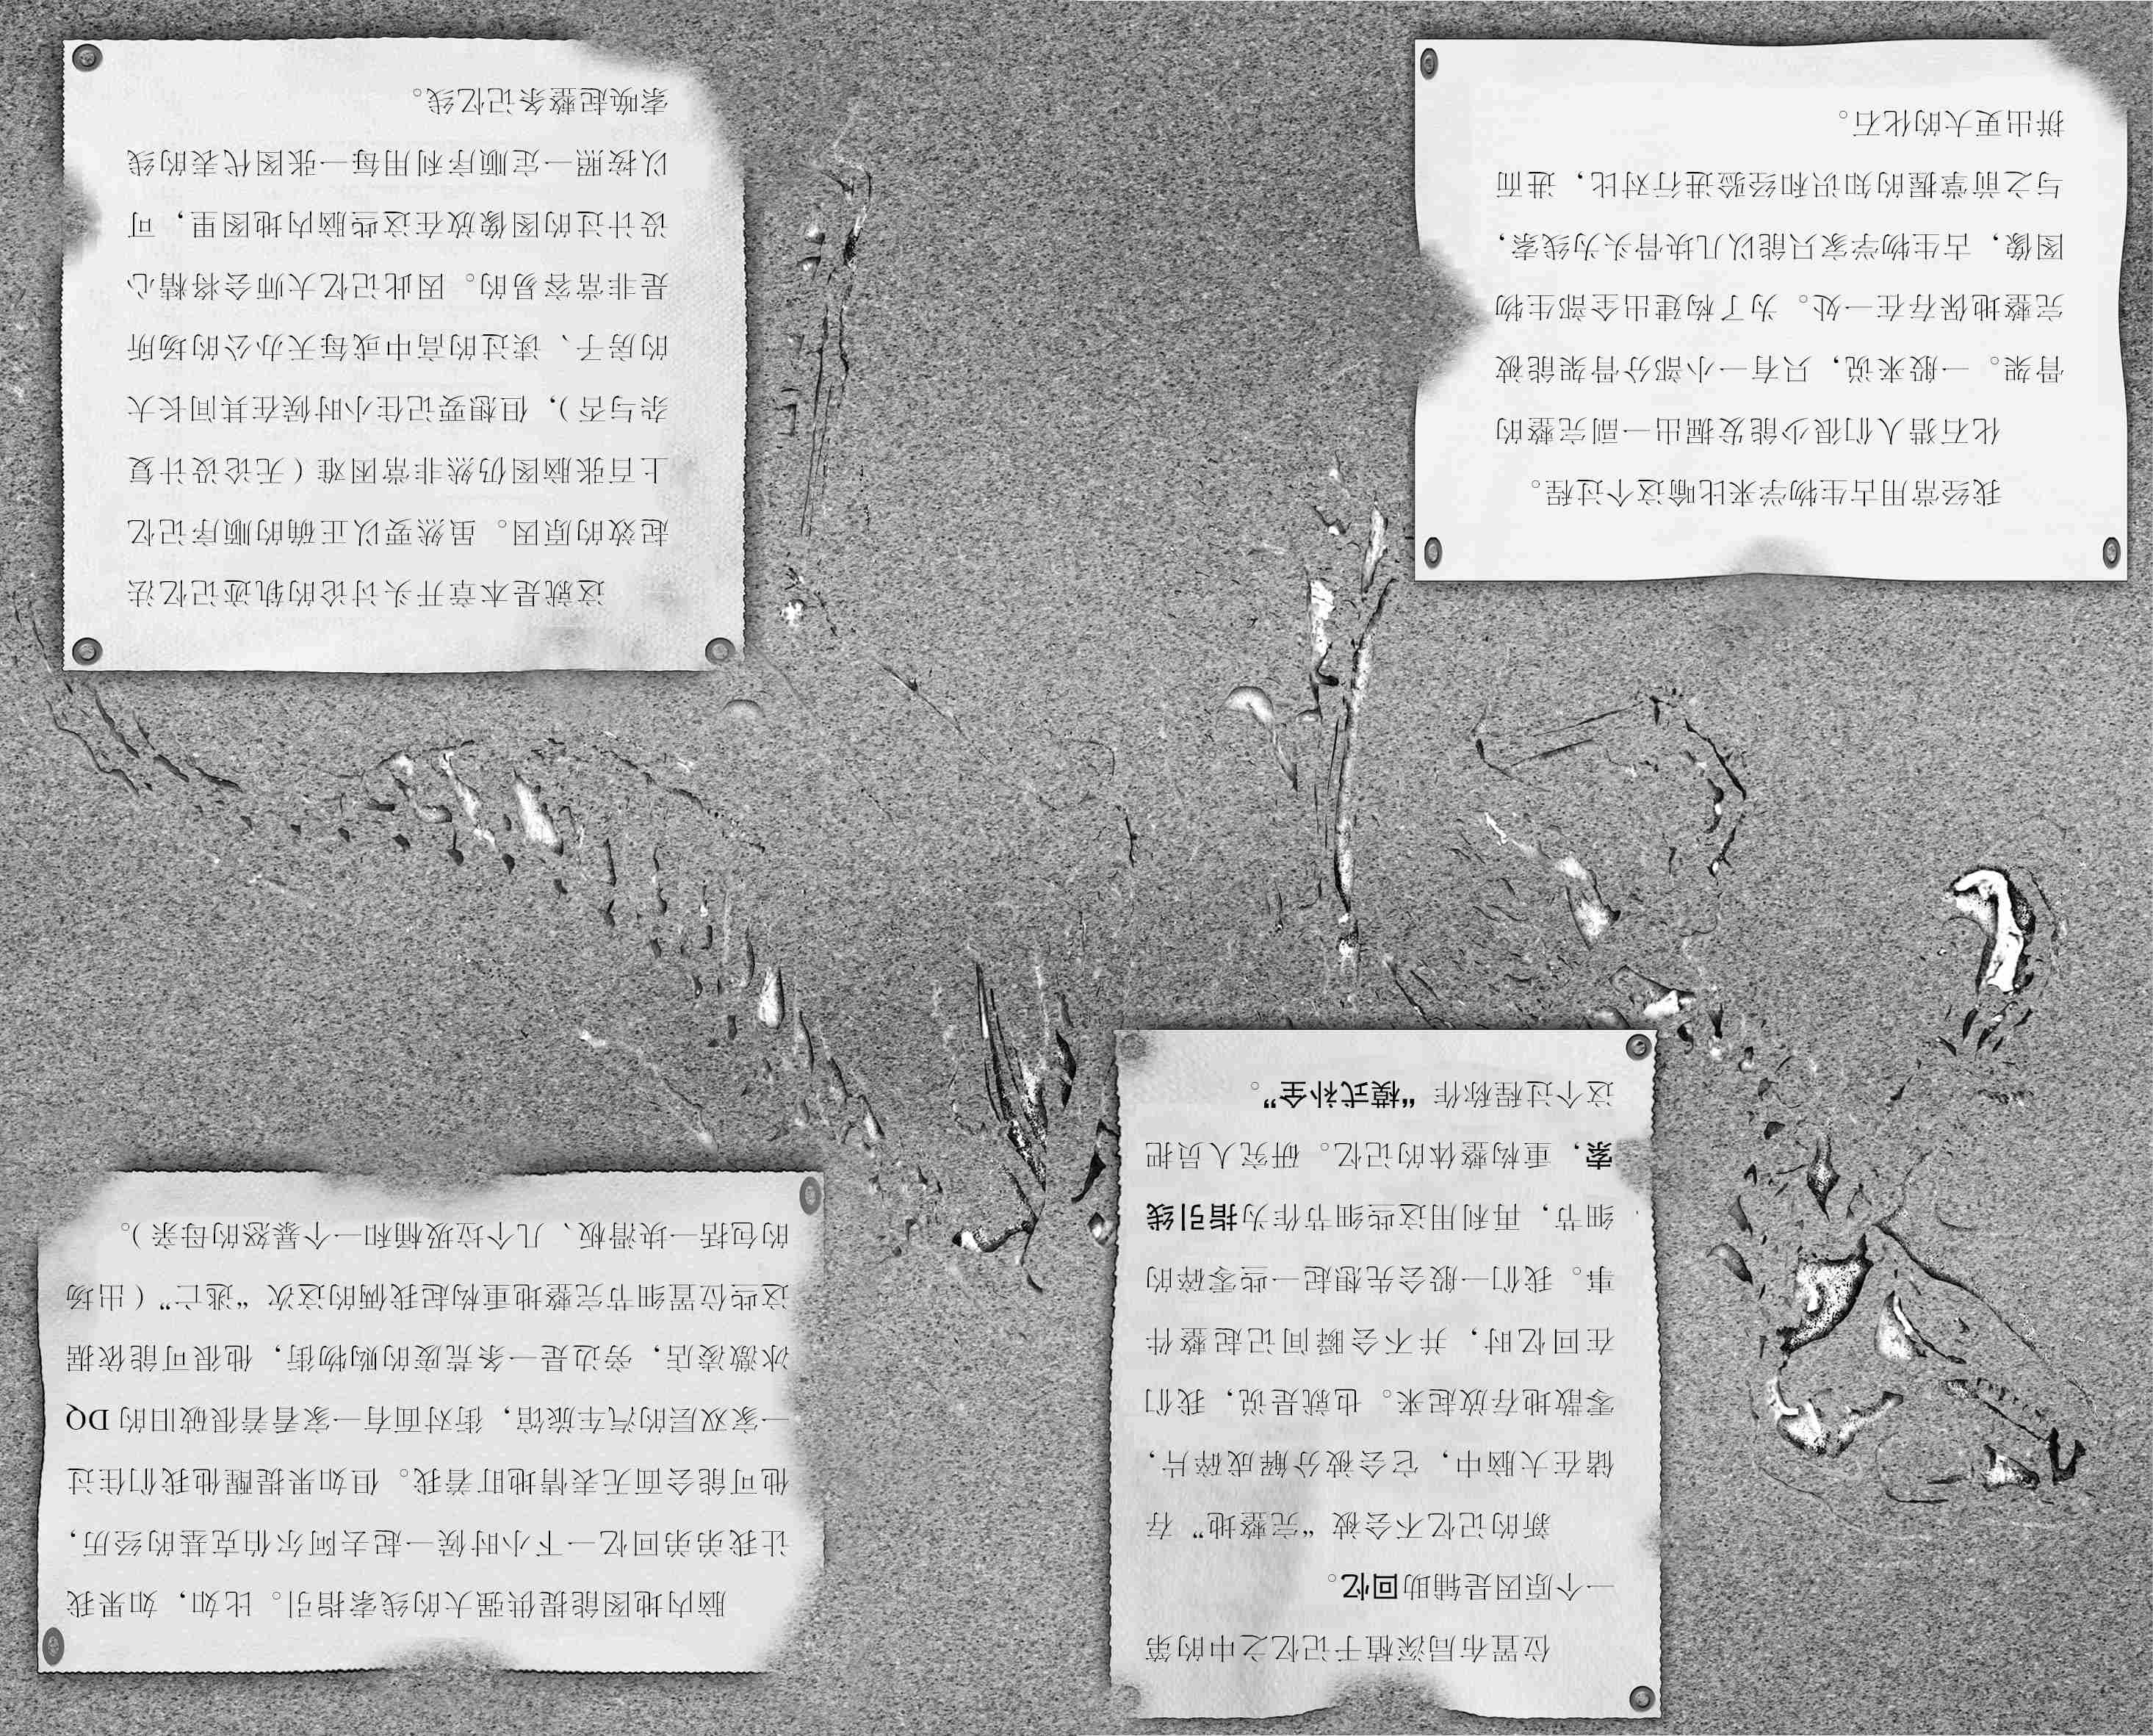 位置布局深植于记忆之中的第
一个原因是辅助回忆。
新的记忆不会被“完整地”存
储在大脑中，它会被分解成碎片，
零散地存放起来。也就是说，我们
在回忆时，并不会瞬间记起整件
事。我们一般会先想起一些零碎的
细节，再利用这些细节作为指引线
索，重构整体的记忆。研究人员把
这个过程称作“模式补全”。
我经常用古生物学来比喻这个过程。
化石猎人们很少能发掘出一副完整的
骨架。一般来说，只有一小部分骨架能被
完整地保存在一处。为了构建出全部生物
图像，古生物学家只能以几块骨头为线索，
与之前掌握的知识和经验进行对比，进而
拼出更大的化石。
脑内地图能提供强大的线索指引。比如，如果我
让我弟弟回忆一下小时候一起去阿尔伯克基的经历，
他可能会面无表情地盯着我。但如果提醒他我们住过
一家双层的汽车旅馆，街对面有一家看着很破旧的DQ
冰激凌店，旁边是一条荒废的购物街，他很可能依据
这些位置细节完整地重构起我俩的这次“逃亡”（出场
的包括一块滑板、几个垃圾桶和一个暴怒的母亲）。
这就是本章开头讨论的轨迹记忆法
起效的原因。虽然要以正确的顺序记忆
上百张脑图仍然非常困难（无论设计复
杂与否），但想要记住小时候在其间长大
的房子、读过的高中或每天办公的场所
是非常容易的。因此记忆大师会将精心
设计过的图像放在这些脑内地图里，可
以按照一定顺序利用每一张图代表的线
索唤起整条记忆线。